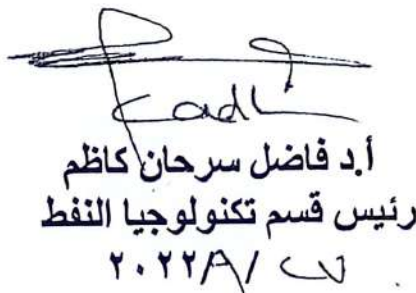 أ.د فاضل سرحان كاظم
رئيس قسم تكنولوجيا النفط
٢٠٢٢/٨/